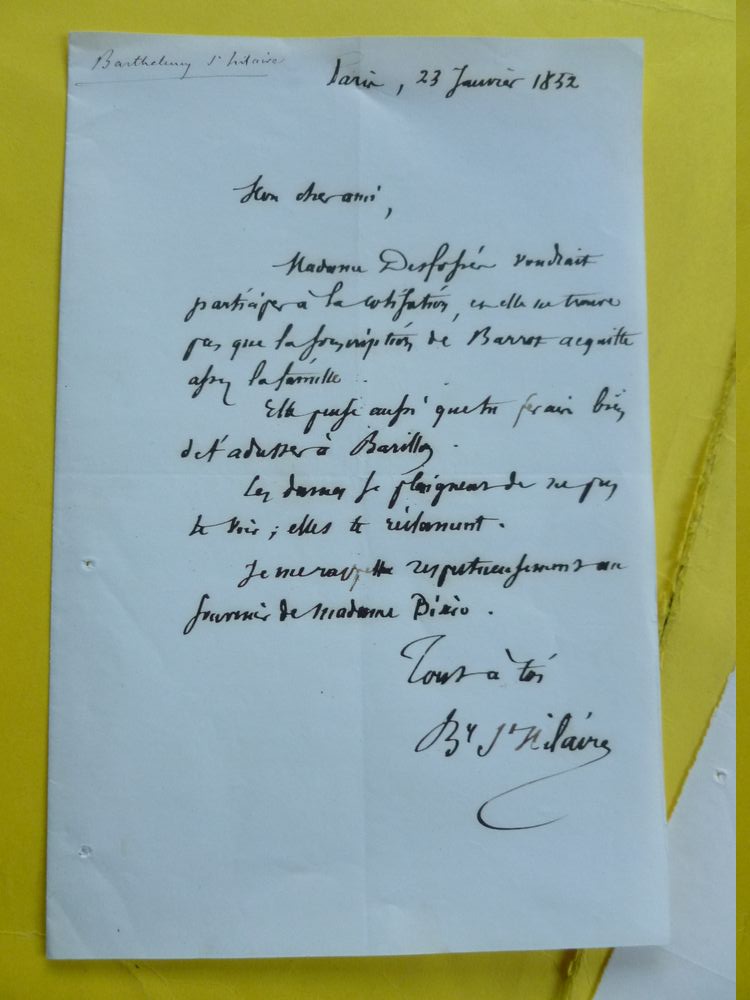 Barthelemy St hilaire
Paris, 23 Janvier 1852
Mon cher ami,
Madame Desfossés voudrait
participer à la cotisation, et elle ne trouve
pas que la souscription de Barrot acquitte
assez la famille.
Elle pense aussi que tu ferais bien
de t'adresser à Barillon.
Ces dames se plaignent de ne pas
te voir ; elles te réclament.
Je me rappelle respectueusement au
souvenir de madame
Tout à toi
By St Hilaire